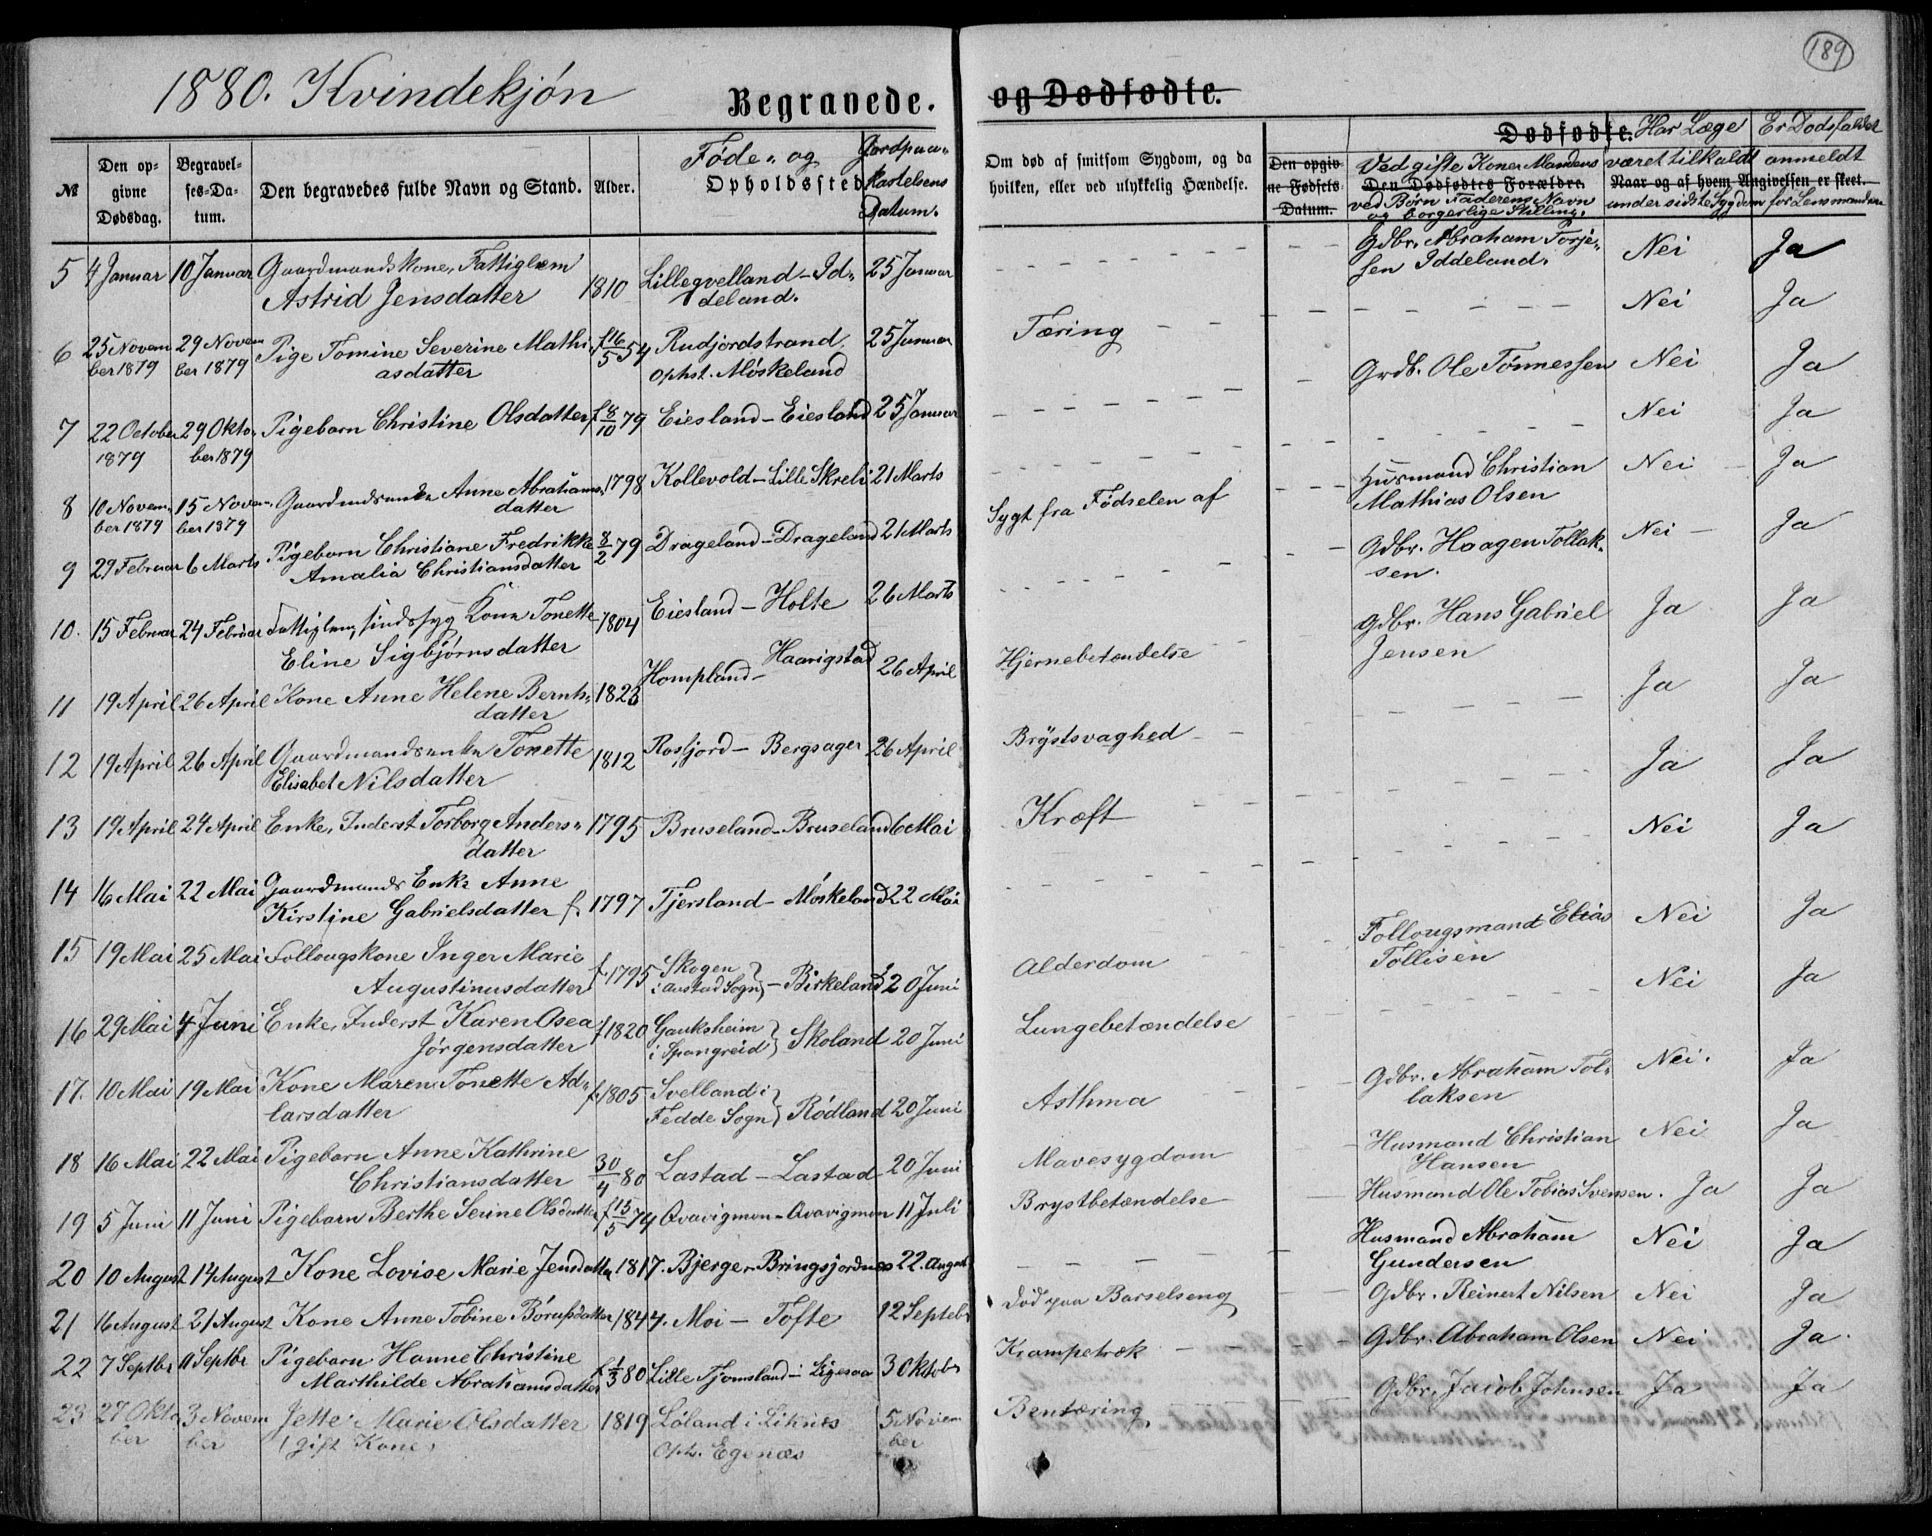 189
1880. Kvindekjøn Begravede. og Dødfødte.
№
Den opgivne Dødsdag.
Begravelses-Datum.
Den begravedes fulde Navn og Stand.
Alder.
Føde- og Opholdssted
Jordpaakastelsens Datum.
Om død af smitsom Sygdom, og da hvilken, eller ved ulykkelig Hændelse.
Den opgivne Fødsels-Datum.
Dødfødte.
Den Dødfødtes Forældre.
Ved gifte Koner Mandens ved Børn Faderens Navn og borgerlige Stilling.
Naar og af hvem Angivelsen er skeet.
Har Læge været tilkaldt under sidste Sygdom
Er Dødsfaldet anmeldt for Lensmanden
5 4 Januar 10 Januar Gaardmandskone, Fattiglem 1810 Lillegvelland - Id- 25 Januar Gdbr. Abraham Torje- Nei Ja
Astrid Jensdatter deland. sen Iddeland.
6 25 Novem 29 Novem Pige Tomine Severine Mathi- f 16/5 54 Rudjordstrand 25 Januar Tæring Nei Ja
ber 1879 ber 1879 asdatter Ophst. Møskeland
7 22 October 29 Okto- Pigebarn Christine Olsdatter f 8/10 79 Eiesland - Eiesland 25 Januar Grdb. Ole Tønnessen Nei Ja
1879 ber 1879
8 10 Novem- 15 Novem- Gaardmdsenke Anne Abrahams- 1798 Kollevold - Lille Skreli 21 Marts Nei Ja
ber 1879 ber 1879 datter
9 29 Februar 6 Marts Pigebarn Christiane Fredrikke 8/2 79 Drageland - Drageland 21 Marts Sygt fra Fødselen af Husmand Christian Nei Ja
Amalia Christiansdatter Mathias Olsen
10. 15 Februar 24 Februar Fattiglem, sindssyg Kone Tonette 1804 Eiesland - Holte 26 Marts Gdbr. Haagen Tollak- Nei Ja
Eline Sigbjørnsdatter sen.
11 19 April 26 April Kone Anne Helene Bernts- 1823 Hompland - Haarigstad 26 April Hjernebetændelse Gdbr. Hans Gabriel Ja Ja
datter Jensen
12 19 April 26 April Gaardmandsenke Tonette 1812 Rosfjord - Bergsager 26 April Brÿstsvaghed Ja Ja
Elisabet Nilsdatter
13 19 April 24 April Enke, Inderst Torborg Anders- 1795 Bruseland - Bruseland 6 Mai Kræft Ja Ja
datter
14 16 Mai 22 Mai Gaardmands Enke Anne 1797 Tjersland - Møskeland 22 Mai Nei Ja
Kirstine Gabrielsdatter f.
15 19 Mai 25 Mai Follougskone Inger Marie f 1795 Skogen i Austad Sogn - Birkeland 20 Juni Alderdom Follougsmand Elias Nei Ja
Augustinusdatter Tollisen
16 29 Mai 4 Juni Enke, Inderst Karen Osea f 1820 Gauksheim i Spangreid Skoland 20 Juni Lungebetændelse Nei Ja
Jørgensdatter
17. 10 Mai 19 Mai Kone Maren Tonette Ad- f. 1805 Svelland i Fedde Sogn Rødland 20 Juni Asthma Gdbr. Abraham Tol- Nei. Ja
larsdatter laksen
18 16 Mai 22 Mai Pigebarn Anne Kathrine 30/4 80 Lastad - Lastad 20 Juni Mavesygdom Husmand Christian Nei Ja
Christiansdatter Hansen
19 5 Juni 11 Juni Pigebarn Berthe Serine Olsdatter f 15/5 74 Qvavigmon - Qvavigmon 11 Juli Brystbetændelse Husmand Ole Tobias Svensen. Ja Ja
20 10 August 14 August Kone Lovise Marie Jensdatter 1817. Bjerge - Bringsjordnes 22. August Husmand Abraham Nei Ja
Gundersen
21 16 August 21 August Kone Anne Tobine Børufsdatter 1844. Moi - Tofte 12 Septebr Død paa Barselseng Gdbr. Reinert Nilsen Nei Ja
22 7 Septbr 11 Septbr Pigebarn Hanne Christine f 1/3 80 Lille Tjomsland - Ligesaa 3 Oktobr Krampetræk Gdbr. Abraham Olsen Nei Ja.
Marthilde Abrahamsdatter
23 27 Okto 3 Novem Jette Marie Olsdatter 1819 Løland i Liknes 5 Novem Bentæring Gdbr. Jacob Johnsen Ja Ja
ber ber (gift Kone) Oph. Egenæs ber